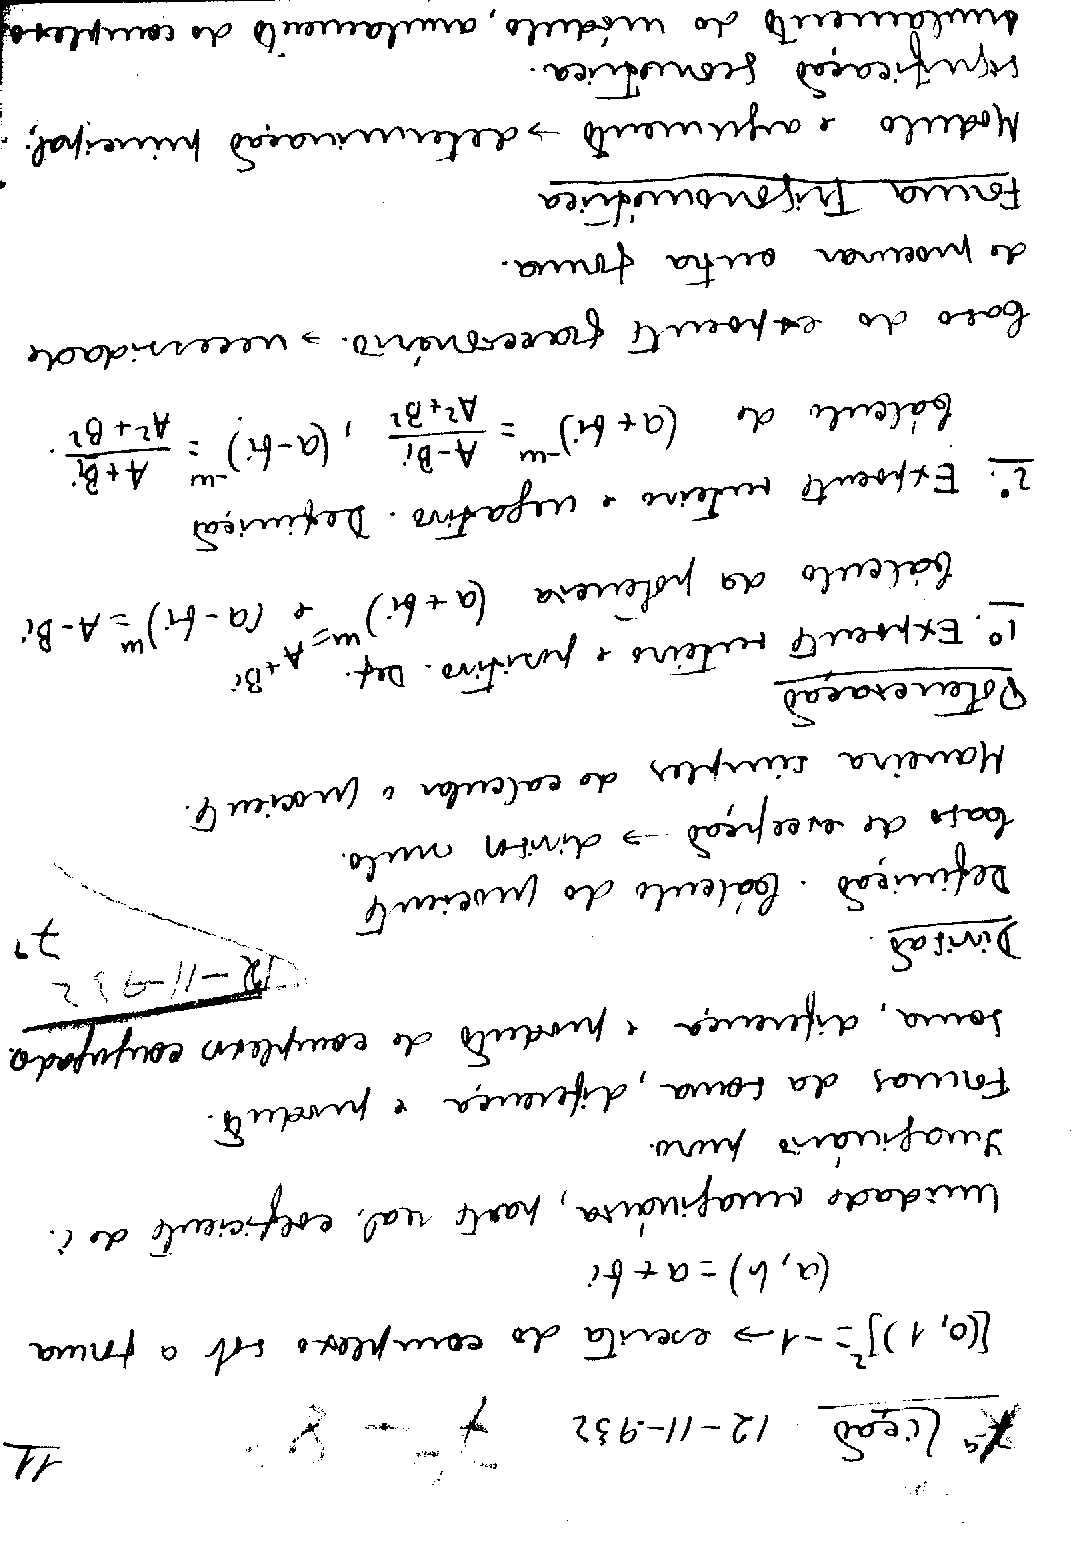 11
Lição 12-11-932
[(0,1)]² = -1 → escrita do complexo sob a forma
(a, b) = a + bi
Unidade imaginária, parte real, coeficiente de i.
Imaginário puro.
Formas da soma, diferença e produto.
Soma, diferença e produto de complexos conjugados
12-11-932
7ª
Divisão
Definição. Cálculo do quociente
Caso de excepção → divisor nulo.
Maneira simples de calcular o quociente.
Potenciação
1º. Expoente inteiro e positivo. Def.
Cálculo da potência (a+bi)^m = A+Bi e (a-bi)^m = A-Bi
2º. Expoente inteiro e negativo. Definição
Cálculo de (a+bi)^-m = (A-Bi)/(A²+B²), (a-bi)^-m = (A+Bi)/(A²+B²).
Caso do expoente fraccionário. → necessidade
de procurar outra forma.
Forma Trigonométrica
Modulo e argumento → determinação principal;
significação geométrica.
Anulamento do módulo, anulamento do complexo